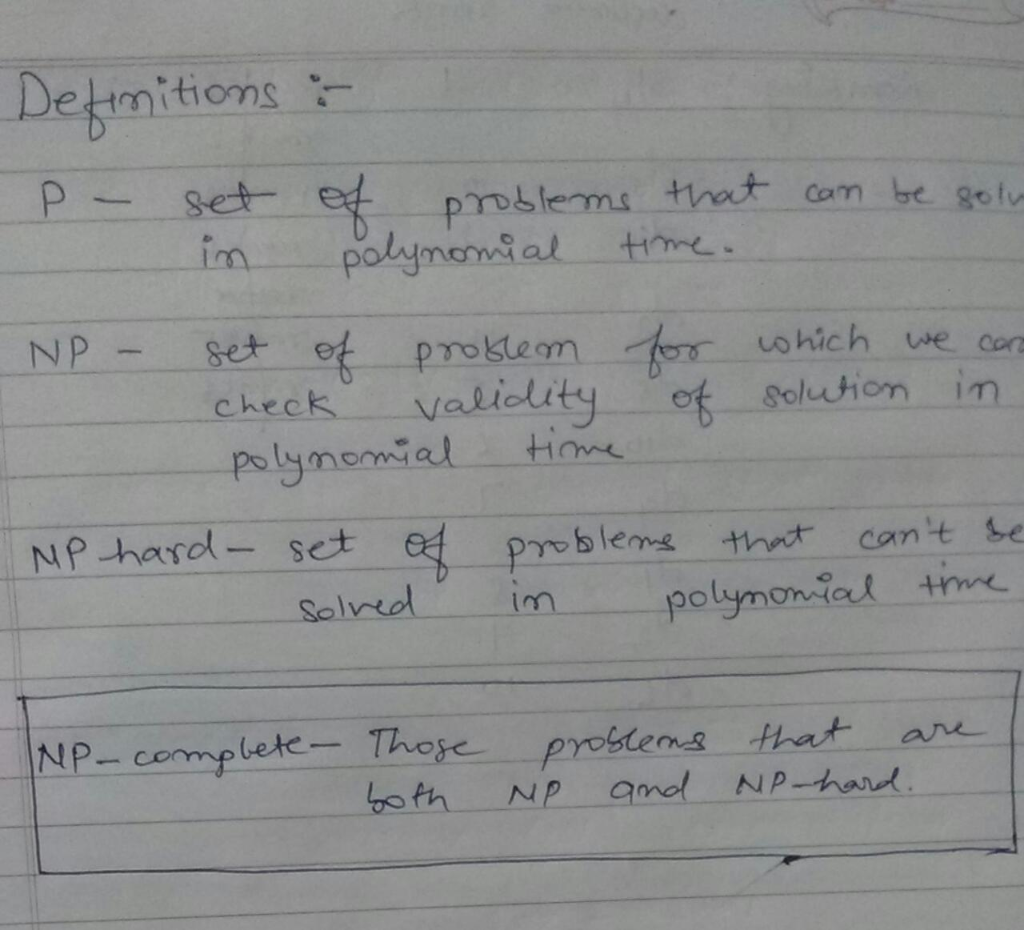 Definitions :-
P - set of problems that can be solv
in polynomial time.
NP - set of problem for which we can
check validity of solution in
polynomial time
NP hard - set of problems that can't be
solved in polynomial time
NP-complete - Those problems that are
both NP and NP-hard.